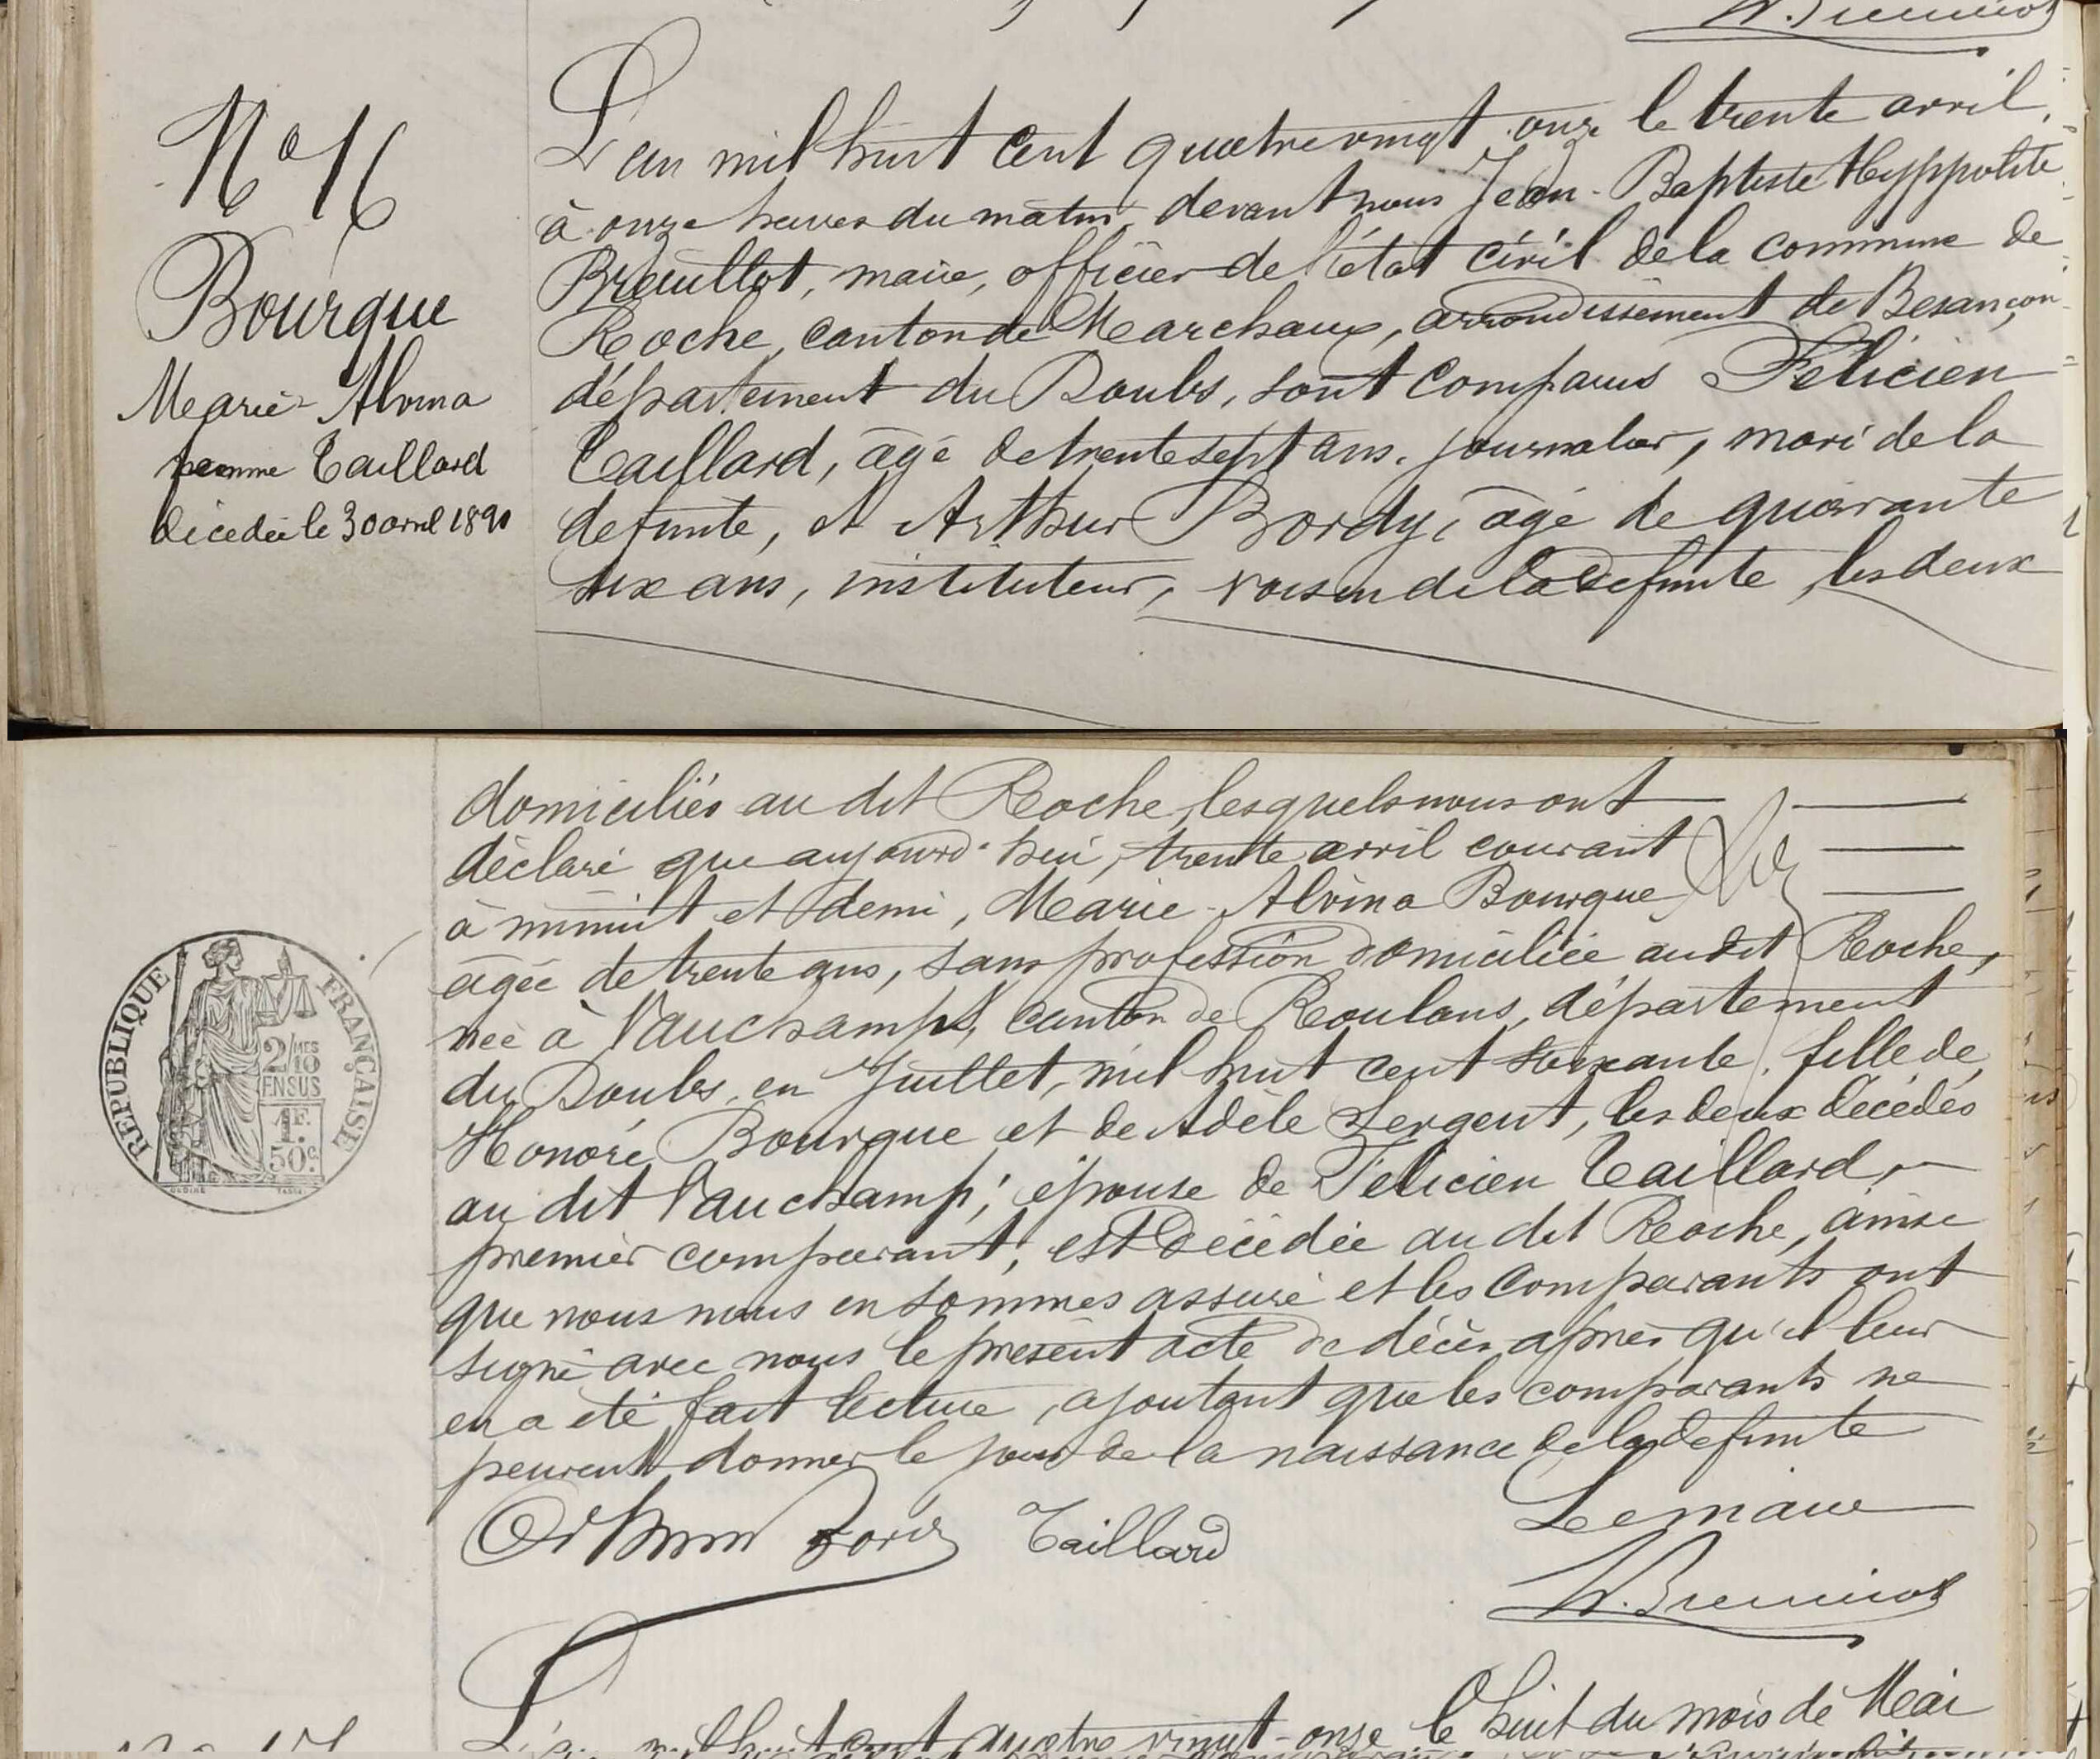 N° 16
Bourque
Marie-Alvina
femme Taillard
décédée le 30 avril 1891
L'an mil huit cent quatre vingt onze le trente avril,
à onze heures du matin, devant nous Jean-Baptiste Hyppolite
Breuillot, maire, officier de l'état civil de la commune de
Roche, canton de Marchaux, arrondissement de Besançon
département du Doubs, sont comparus Félicien
Taillard, âgé de trente sept ans, journalier, mari de la
defunte, et Arthur Bordy, âgé de quarante
six ans, instituteur, voisin de la defunte, les deux
domiciliés au dit Roche, lesquels nous ont
déclaré que aujourd'hui, trente avril courant
à minuit et demi, Marie-Alvina Bourque
âgée de trente ans, sans profession domiciliée audit Roche,
née à Vauchamps, canton de Roulans, département
du Doubs, en Juillet, mil huit cent soixante, fille de
Honoré Bourque et de Adèle Sergent, les deux décédés
au dit Vauchamp, épouse de Félicien Taillard,
premier comparant, est décédée au dit Roche, ainsi
que nous nous en sommes assuré et les comparants ont
signé avec nous le présent acte de décès après qu'il leur
en a été fait lecture, ajoutant que les comparants ne
peuvent donner le jour de la naissance de la defunte
Le maire
Taillard
RÉPUBLIQUE FRANÇAISE
2/10 MES
EN SUS
1F.
50c.
L'an mil huit cent quatre vingt-onze le huit du mois de Mai